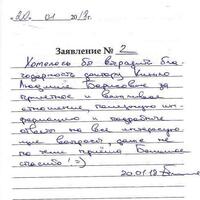 «20» 01 2018г.
Заявление № 2
Хотелось бы выразить бла-
годарность доктору
Людмиле Борисовне за
приятное и вежливое
отношение, полезную ин-
формацию и подробные
ответы на все интересую-
щие вопросы, даже не
по теме приёма. Большое
спасибо! =)
20.01.18